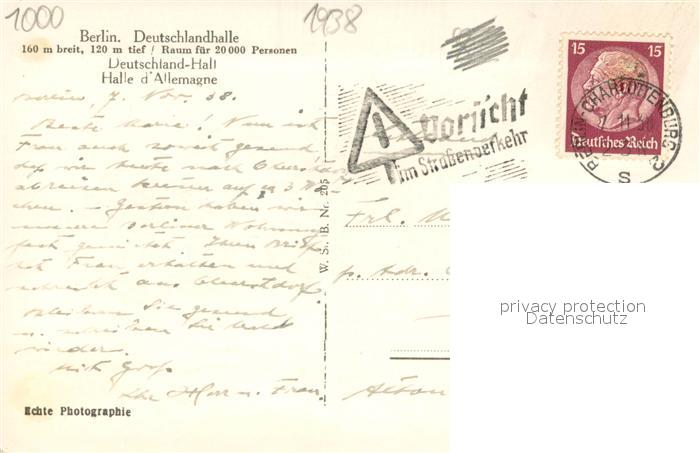 1000
1938
Berlin. Deutschlandhalle
160 m breit, 120 m tief / Raum für 20 000 Personen
Deutschland-Hall
Halle d'Allemagne
Berlin, 7. Nov. 38.
Beste Marie! Nun ist
Frau auch soweit gesund
daß wir heute nach
abreisen können auf 3
Gestern haben wir
unsere Berliner Wohnung
Ihren Brief
hat Frau erhalten und
schreibt aus Oberstdorf
Bleiben Sie gesund
u. schreiben Sie bald
wieder.
Mit Gruß
Ihr Herr u. Frau
Echte Photographie
W. St. B. Nr. 205
Vorsicht
im Straßenverkehr
15 15
Deutsches Reich
BERLIN-CHARLOTTENBURG 2
S
Frl. M
p. Adr.
Alton
privacy protection
Datenschutz